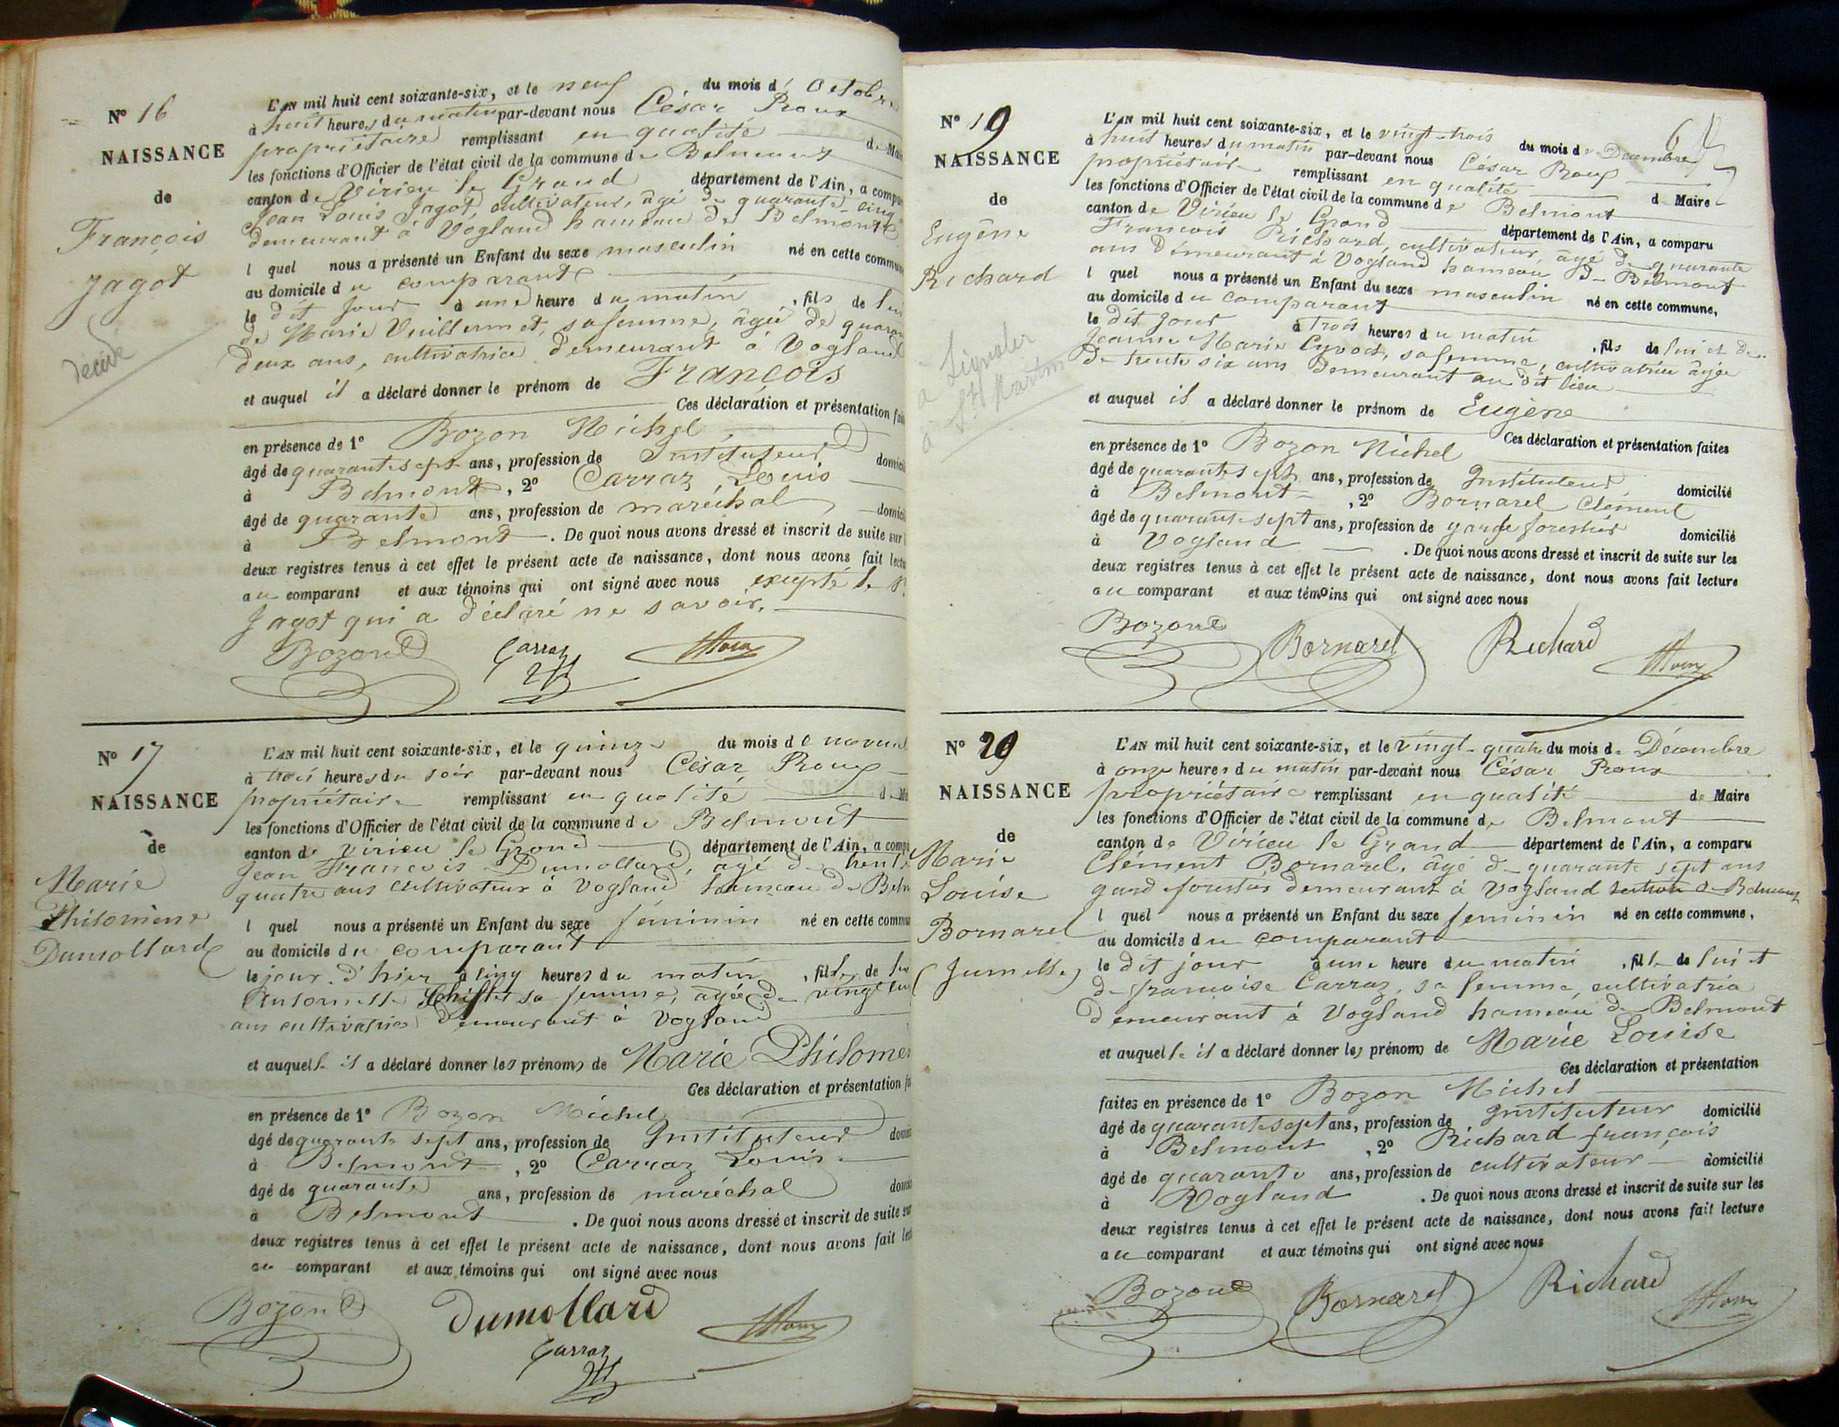 N° 16
NAISSANCE
de
François
Jagot
décédé
L'AN mil huit cent soixante-six, et le neuf du mois d' Octobre
à huit heures du matin par-devant nous César Roux
propriétaire remplissant en qualité de Mai
les fonctions d'Officier de l'état civil de la commune de Belmont
canton de Virieu le Grand département de l'Ain, a compa
Jean Louis Jagot, cultivateur, âgé de quarante cinq
demeurant à Vogland hameau de Belmont
l quel nous a présenté un Enfant du sexe masculin né en cette commun
au domicile du comparant
le dit jour à une heure du matin, fils de lui
de Marie Vuillermet, sa femme, âgée de quaran
deux ans, cultivatrice demeurant à Vogland
et auquel il a déclaré donner le prénom de François
Ces déclaration et présentation fai
en présence de 1° Bozon Michel
âgé de quarante sept ans, profession de Instituteur domici
à Belmont, 2° Carraz Louis
âgé de quarante ans, profession de maréchal domici
à Belmont. De quoi nous avons dressé et inscrit de suite sur
deux registres tenus à cet effet le présent acte de naissance, dont nous avons fait lectu
au comparant et aux témoins qui ont signé avec nous excepté le
Jagot qui a déclaré ne savoir.
Bozon Carraz Roux
N° 17
NAISSANCE
de
Marie
Philomène
Dumollard
L'AN mil huit cent soixante-six, et le quinze du mois de novem
à trois heures du soir par-devant nous César Roux
propriétaire remplissant en qualité de Ma
les fonctions d'Officier de l'état civil de la commune de Belmont
canton de Virieu le Grand département de l'Ain, a compa
Jean François Dumollard, âgé de trente
quatre ans cultivateur à Vogland hameau de Belm
l quel nous a présenté un Enfant du sexe féminin né en cette commu
au domicile du comparant
le jour d'hier à cinq heures du matin, fille de lui
Antoinette sa femme, âgée de vingt
ans cultivatrice demeurant à Vogland
et auquelle il a déclaré donner les prénoms de Marie Philomèn
Ces déclaration et présentation fa
en présence de 1° Bozon Michel
âgé de quarante sept ans, profession de Instituteur domi
à Belmont, 2° Carraz Louis
âgé de quarante ans, profession de maréchal domi
à Belmont. De quoi nous avons dressé et inscrit de suite sur
deux registres tenus à cet effet le présent acte de naissance, dont nous avons fait lect
au comparant et aux témoins qui ont signé avec nous
Bozon Dumollard Roux
Carraz
N° 19
NAISSANCE
de
Eugène
Richard
à Signaler
à St Martin
L'AN mil huit cent soixante-six, et le vingt-trois du mois de Décembre
à huit heures du matin par-devant nous César Roux
propriétaire remplissant en qualité de Maire
les fonctions d'Officier de l'état civil de la commune de Belmont
canton de Virieu le Grand département de l'Ain, a comparu
François Richard, cultivateur, âgé de quarante
ans demeurant à Vogland hameau de Belmont
l quel nous a présenté un Enfant du sexe masculin né en cette commune,
au domicile du comparant
le dit jour à trois heures du matin, fils de lui et de
Jeanne Marie sa femme, cultivatrice âgée
de trente six ans demeurant au dit lieu
et auquel il a déclaré donner le prénom de Eugène
Ces déclaration et présentation faites
en présence de 1° Bozon Michel
âgé de quarante sept ans, profession de Instituteur domicilié
à Belmont, 2° Bornarel Clément
âgé de quarante sept ans, profession de garde forestier domicilié
à Vogland. De quoi nous avons dressé et inscrit de suite sur les
deux registres tenus à cet effet le présent acte de naissance, dont nous avons fait lecture
au comparant et aux témoins qui ont signé avec nous
Bozon Bornarel Richard Roux
N° 20
NAISSANCE
de
Marie
Louise
Bornarel
(Jumelle)
L'AN mil huit cent soixante-six, et le vingt-quatre du mois de Décembre
à onze heures du matin par-devant nous César Roux
propriétaire remplissant en qualité de Maire
les fonctions d'Officier de l'état civil de la commune de Belmont
canton de Virieu le Grand département de l'Ain, a comparu
Clément Bornarel, âgé de quarante sept ans
garde forestier demeurant à Vogland section de Belmont
l quel nous a présenté un Enfant du sexe féminin né en cette commune,
au domicile du comparant
le dit jour à une heure du matin, fille de lui et
de françoise Carraz, sa femme, cultivatrice
demeurant à Vogland hameau de Belmont
et auquelle il a déclaré donner les prénoms de Marie Louise
Ces déclaration et présentation
faites en présence de 1° Bozon Michel
âgé de quarante sept ans, profession de Instituteur domicilié
à Belmont, 2° Richard françois
âgé de quarante ans, profession de cultivateur domicilié
à Vogland. De quoi nous avons dressé et inscrit de suite sur les
deux registres tenus à cet effet le présent acte de naissance, dont nous avons fait lecture
au comparant et aux témoins qui ont signé avec nous
Bozon Bornarel Richard Roux